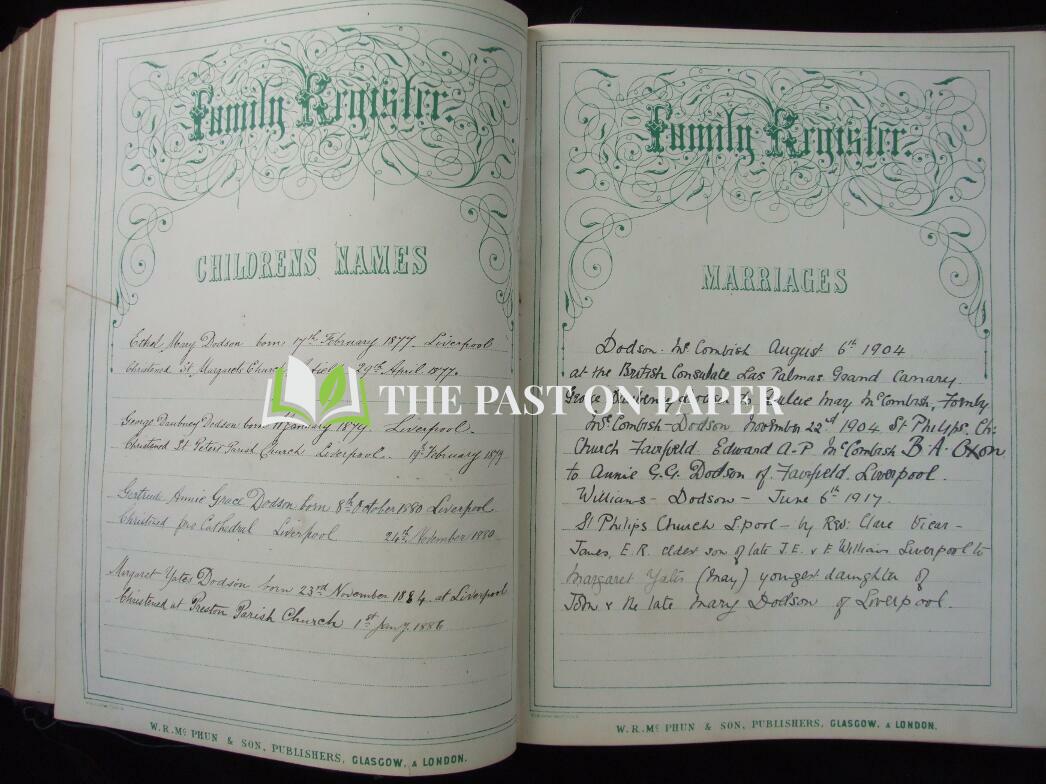 Family Register.
CHILDRENS NAMES
Ethel Mary Dodson born 17th February 1877. Liverpool
Christened St. Margarets Church 29th April. 1877.
George Daubney Dodson born January 1879. Liverpool.
Christened St. Peters Parish Church Liverpool. 19th February 1879
Gertrude Annie Grace Dodson born 8th October 1880 Liverpool
Christened pro Cathedral Liverpool 24th November 1880
Margaret Yates Dodson born 23rd November 1884 at Liverpool
Christened at Preston Parish Church 1st Jany. 1886
W. R. Mc PHUN & SON, PUBLISHERS, GLASGOW, & LONDON.
Family Register.
MARRIAGES
Dodson - McCombish August 6th 1904
at the British Consulate Las Palmas Grand Canary.
George Daubney Dodson to May McCombish,
McCombish - Dodson November 22nd 1904 St Philips. Ch:
Church Fairfield Edward A-P McCombish B.A. Oxon
to Annie G.G. Dodson of Fairfield Liverpool.
Williams - Dodson - June 6th 1917.
St Philips Church Lpool - by Rev: Clare Vicar -
James, E. R. elder son of late J. E. & E William Liverpool to
Margaret Yates (May) youngest daughter of
John & the late Mary Dodson of Liverpool.
W. R. Mc PHUN & SON, PUBLISHERS, GLASGOW, & LONDON.
THE PAST ON PAPER